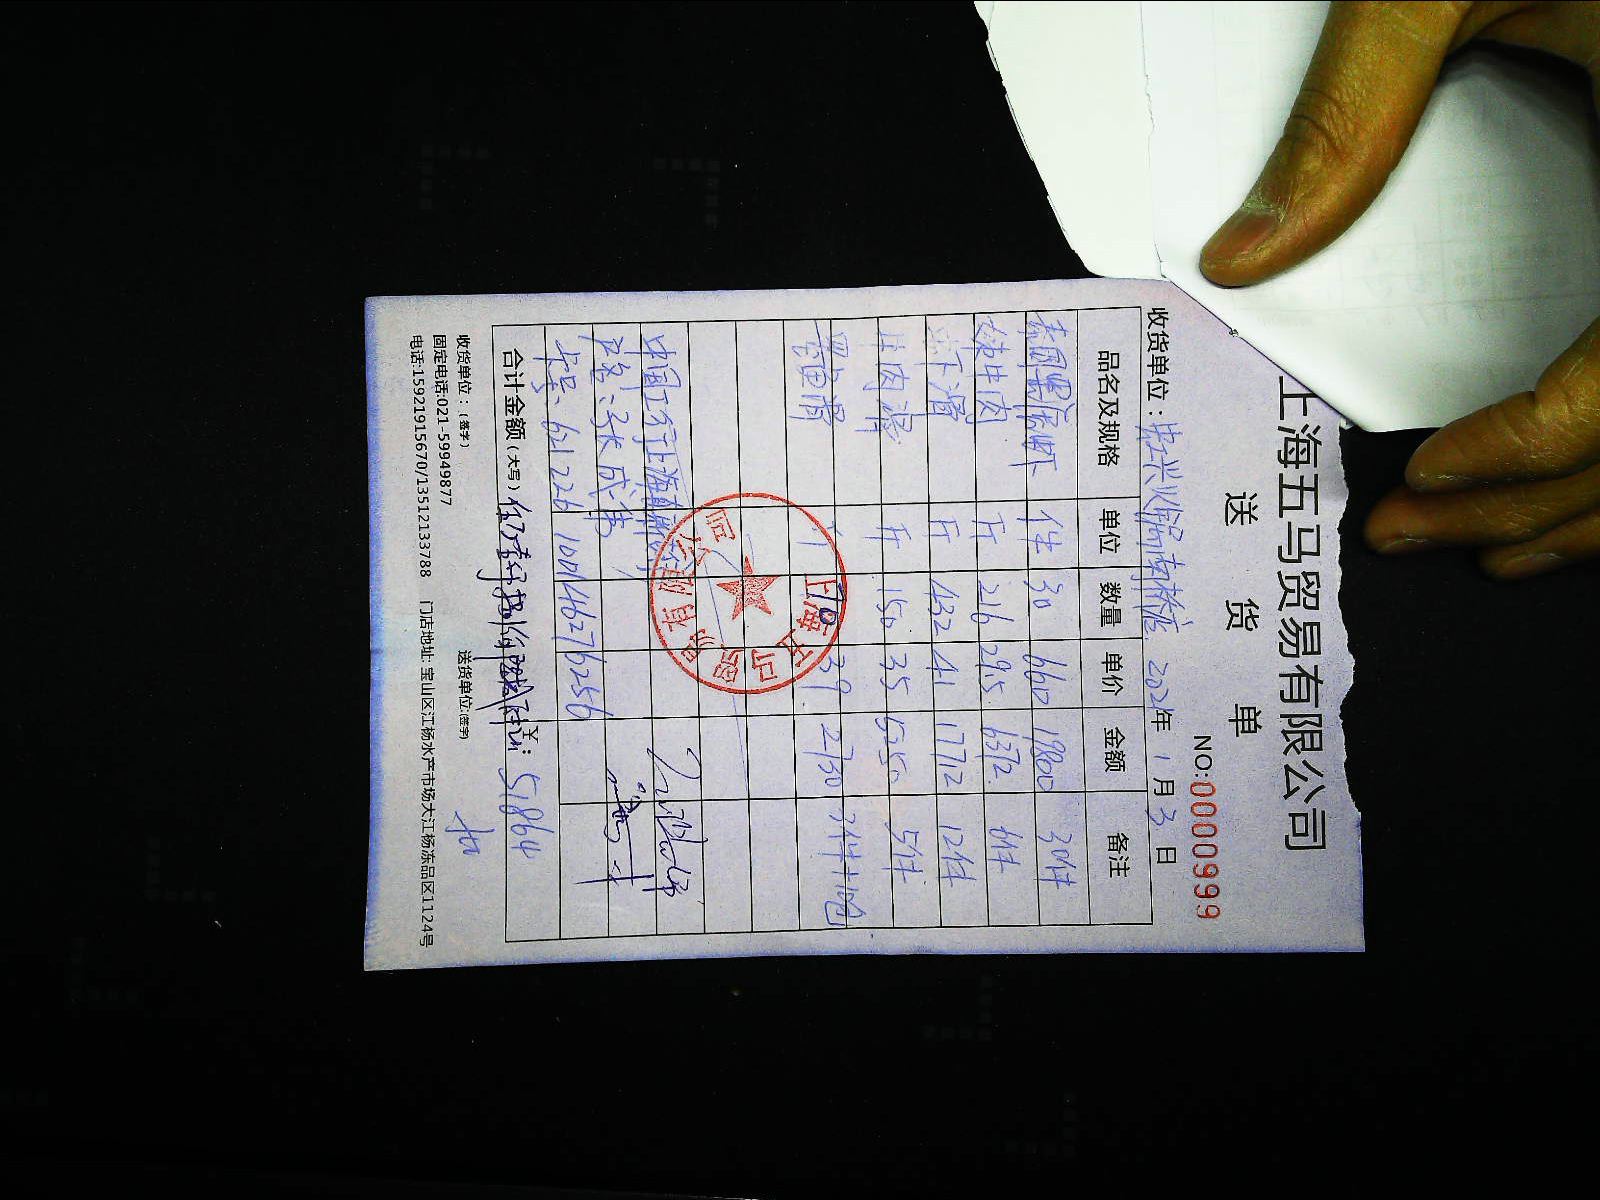 上海五马贸易有限公司
送 货 单
NO:0000999
收货单位: 南桥店 2021年 1 月 3 日
品名及规格 单位 数量 单价 金额 备注
泰国黑 虾 件 30 660 19800 30件
斤 216 29.5 6372 6件
斤 432 41 17712 12件
牛肉 斤 150 35 5250 5件
斤 70 39 2730 3件+1包
中国工行上海
户名:张成伟
卡号: 621226 1001462776256
合计金额(大写) ¥: 51864
收货单位:(签字) 送货单位(签字)
固定电话:021-59949877
电话:15921915670/13512133788 门店地址: 宝山区江杨水产市场大江杨冻品区1124号
上海五马贸易有限公司